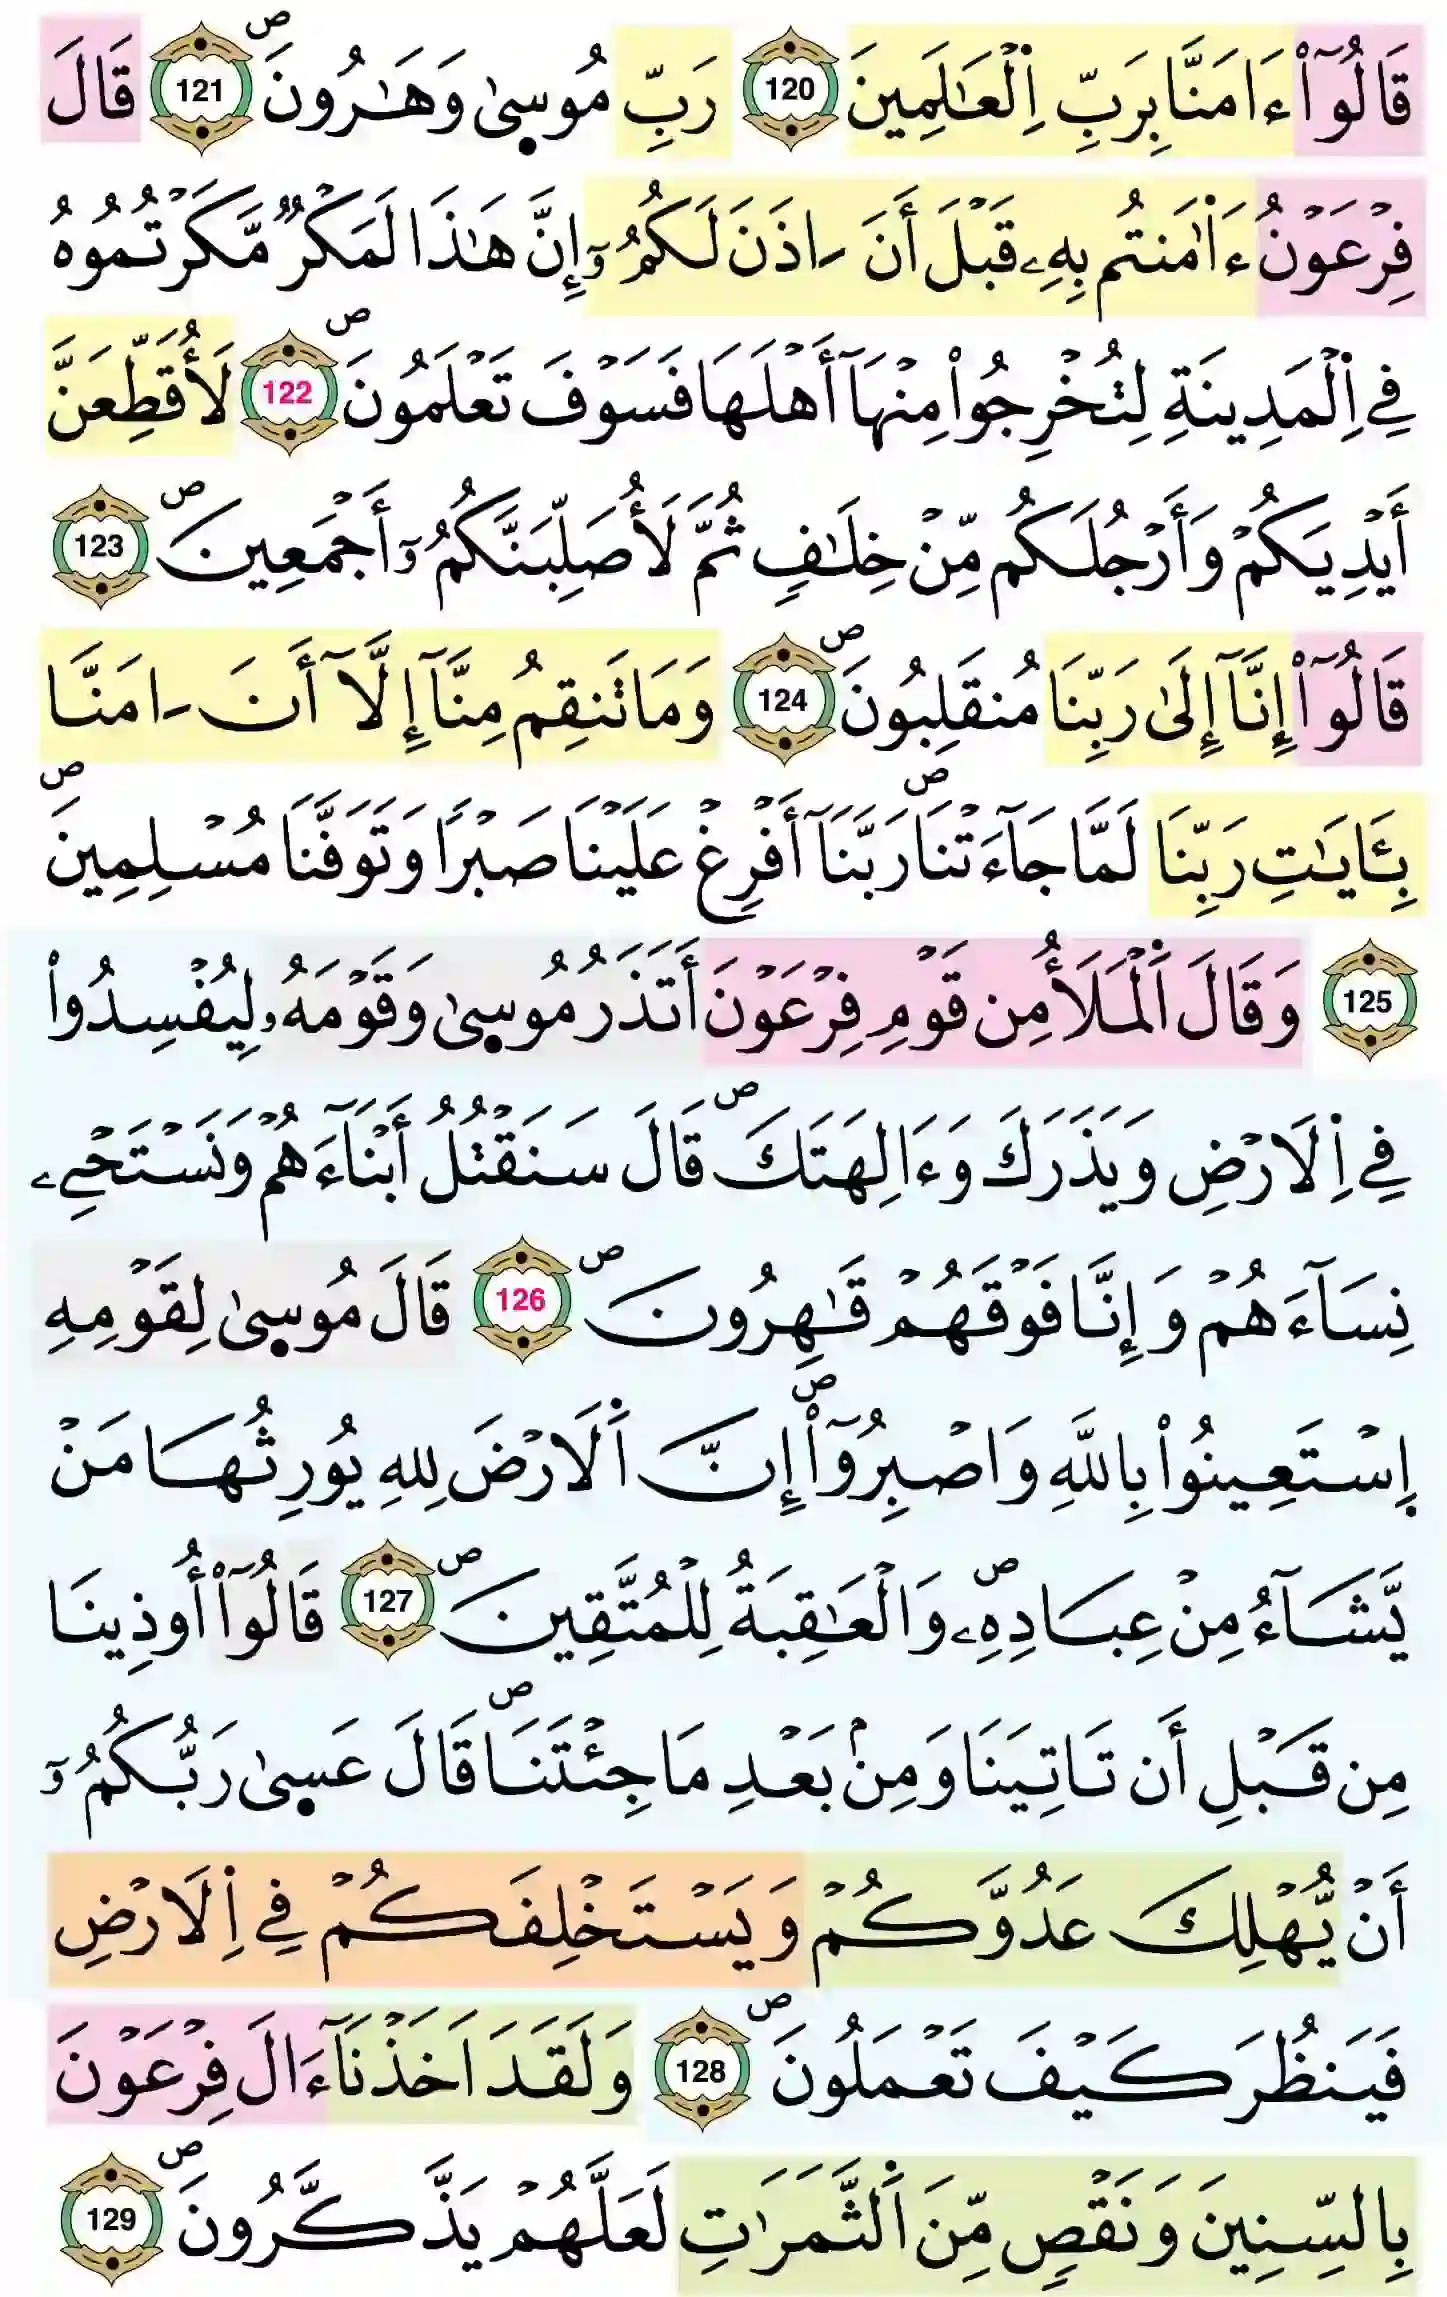 قَالُوٓاْ ءَامَنَّا بِرَبِّ اِ۬لْعَٰلَمِينَ 120 رَبِّ مُوس۪يٰ وَهَٰرُونَۖ 121 قَالَ
فِرْعَوْنُ ءَا۬مَنتُم بِهِۦ قَبْلَ أَنَ اٰذَنَ لَكُمُۥٓ إِنَّ هَٰذَا لَمَكْرٞ مَّكَرْتُمُوهُ
فِے اِ۬لْمَدِينَةِ لِتُخْرِجُواْ مِنْهَآ أَهْلَهَا فَسَوْفَ تَعْلَمُونَۖ 122 لَأُقَطِّعَنَّ
أَيْدِيَكُمْ وَأَرْجُلَكُم مِّنْ خِلَٰفٖ ثُمَّ لَأُصَلِّبَنَّكُمُۥٓ أَجْمَعِينَۖ 123
قَالُوٓاْ إِنَّآ إِلَىٰ رَبِّنَا مُنقَلِبُونَۖ 124 وَمَا تَنقِمُ مِنَّآ إِلَّآ أَنَ اٰمَنَّا
بِـَٔايَٰتِ رَبِّنَا لَمَّا جَآءَتْنَاۖ رَبَّنَآ أَفْرِغْ عَلَيْنَا صَبْراٗ وَتَوَفَّنَا مُسْلِمِينَۖ
125 وَقَالَ اَ۬لْمَلَأُ مِن قَوْمِ فِرْعَوْنَ أَتَذَرُ مُوس۪يٰ وَقَوْمَهُۥ لِيُفْسِدُواْ
فِے اِ۬لَارْضِ وَيَذَرَكَ وَءَالِهَتَكَۖ قَالَ سَنَقْتُلُ أَبْنَآءَهُمْ وَنَسْتَحْيِے
نِسَآءَهُمْ وَإِنَّا فَوْقَهُمْ قَٰهِرُونَۖ 126 قَالَ مُوس۪يٰ لِقَوْمِهِ
اِ۪سْتَعِينُواْ بِاللَّهِ وَاصْبِرُوٓاْۖ إِنَّ اَ۬لَارْضَ لِلهِ يُورِثُهَا مَنْ
يَّشَآءُ مِنْ عِبَادِهِۦۖ وَالْعَٰقِبَةُ لِلْمُتَّقِينَۖ 127 قَالُوٓاْ أُوذِينَا
مِن قَبْلِ أَن تَاتِيَنَا وَمِنۢ بَعْدِ مَا جِئْتَنَاۖ قَالَ عَس۪يٰ رَبُّكُمُۥٓ
أَنْ يُّهْلِكَ عَدُوَّكُمْ وَيَسْتَخْلِفَكُمْ فِے اِ۬لَارْضِ
فَيَنظُرَ كَيْفَ تَعْمَلُونَۖ 128 وَلَقَدَ اَخَذْنَآ ءَالَ فِرْعَوْنَ
بِالسِّنِينَ وَنَقْصٖ مِّنَ اَ۬لثَّمَرَٰتِ لَعَلَّهُمْ يَذَّكَّرُونَۖ 129